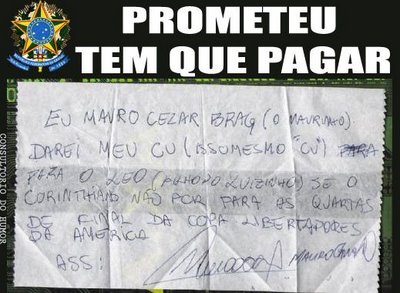 PROMETEU
TEM QUE PAGAR
EU MAURO CEZAR BRAG (O MAURINHO)
DAREI MEU CU (ISSO MESMO "CU") PARA
PARA O LEO (FILHO DO LUIZINHO) SE O
CORINTHIANS NÃO FOR PARA AS QUARTAS
DE FINAL DA COPA LIBERTADORES
DA AMERICA
ASS:
CONSULTORIO DO HUMOR